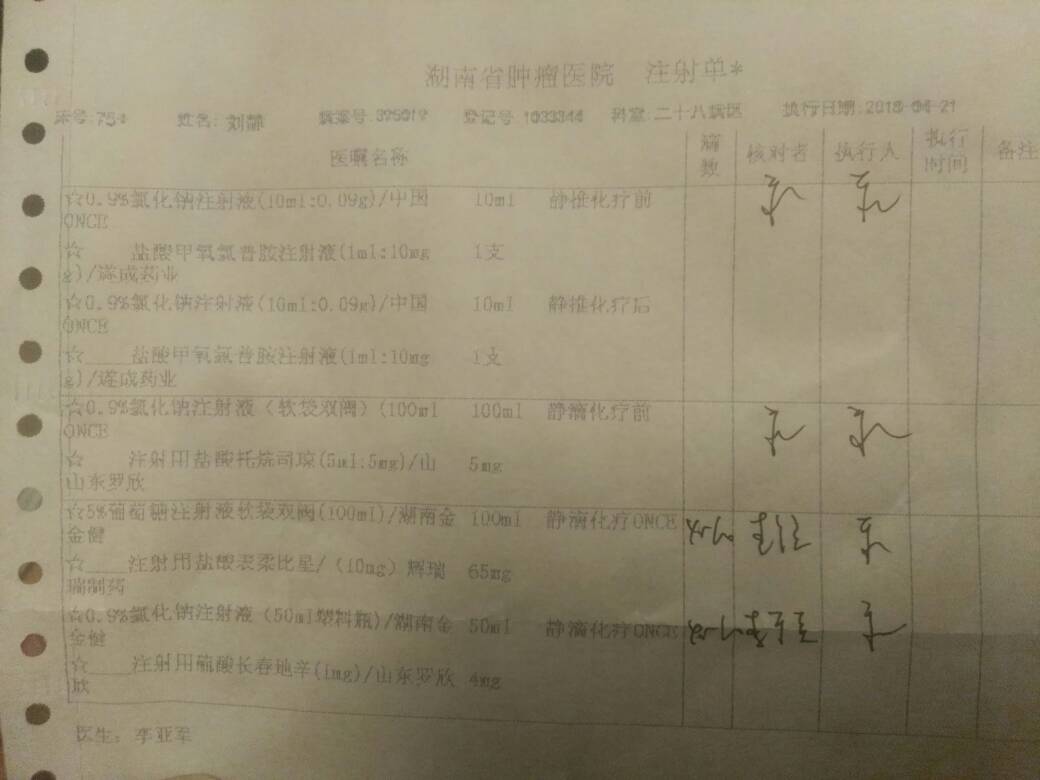 湖南省肿瘤医院 注射单*
床号:754 姓名:刘静 病案号:395019 登记号:1033344 科室:二十八病区 执行日期:2018-04-21
医嘱名称 滴数 核对者 执行人 执行时间 备注
☆0.9%氯化钠注射液(10ml:0.09g)/中国 10ml 静推化疗前
ONCE
☆ 盐酸甲氧氯普胺注射液(1ml:10mg 1支
g)/遂成药业
☆0.9%氯化钠注射液(10ml:0.09g)/中国 10ml 静推化疗后
ONCE
☆____盐酸甲氧氯普胺注射液(1ml:10mg 1支
g)/遂成药业
☆0.9%氯化钠注射液(软袋双阀)(100ml 100ml 静滴化疗前
ONCE
☆ 注射用盐酸托烷司琼(5ml:5mg)/山 5mg
山东罗欣
☆5%葡萄糖注射液软袋双阀(100ml)/湖南金 100ml 静滴化疗ONCE
金健
☆____注射用盐酸表柔比星/(10mg)辉瑞 65mg
瑞制药
☆0.9%氯化钠注射液(50ml塑料瓶)/湖南金 50ml 静滴化疗ONCE
金健
☆____注射用硫酸长春地辛(1mg)/山东罗欣 4mg
欣
医生: 李亚军